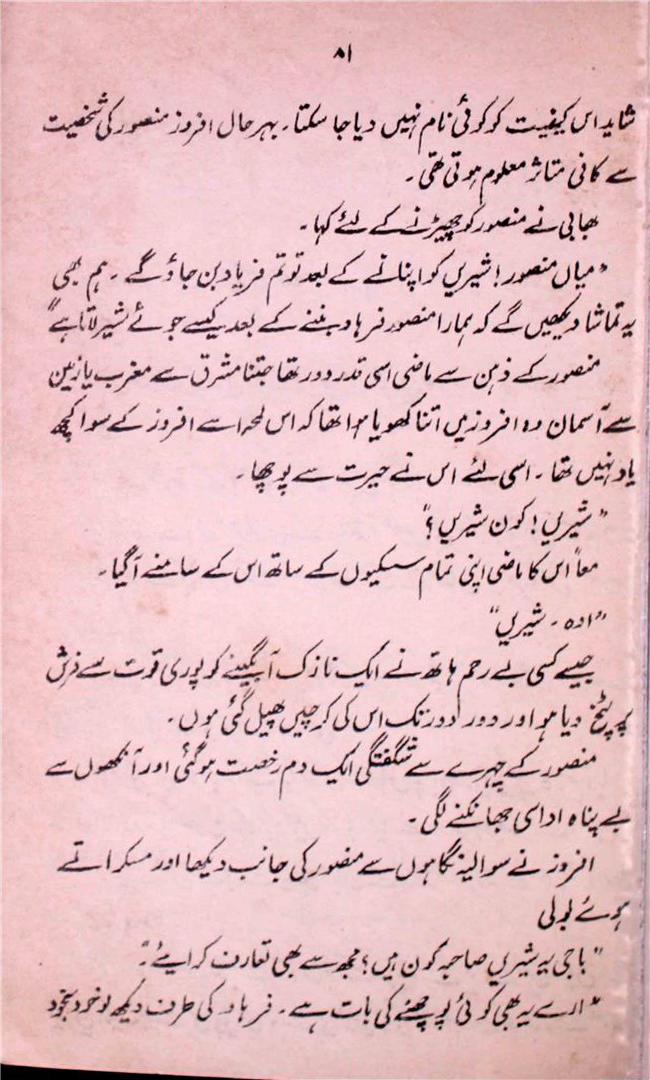 ۸۱
شاید اس کیفیت کو کوئی نام نہیں دیا جا سکتا۔ بہرحال افروز منصور کی شخصیت
سے کافی متاثر معلوم ہوتی تھی۔
بھابی نے منصور کو چھیڑنے کے لئے کہا۔
"میاں منصور! شیریں کو اپنانے کے بعد تو تم فرہاد بن جاؤ گے۔ ہم بھی
یہ تماشا دیکھیں گے کہ ہمارا منصور فرہاد بننے کے بعد کیسے جوئے شیر لاتا ہے"
منصور کے ذہن سے ماضی اسی قدر دور تھا جتنا مشرق سے مغرب یا زمین
سے آسمان وہ افروز میں اتنا کھویا ہوا تھا کہ اس لمحہ اسے افروز کے سوا کچھ
یاد نہیں تھا۔ اسی لئے اس نے حیرت سے پوچھا۔
"شیریں! کون شیریں؟"
معاً اس کا ماضی اپنی تمام سسکیوں کے ساتھ اس کے سامنے آ گیا۔
"اوہ۔ شیریں"
جیسے کسی بے رحم ہاتھ نے ایک نازک آبگینے کو پوری قوت سے فرش
پر پٹخ دیا ہو اور دور دور تک اس کی کرچیں پھیل گئی ہوں۔
منصور کے چہرے سے شگفتگی ایک دم رخصت ہو گئی اور آنکھوں سے
بے پناہ اداسی جھانکنے لگی۔
افروز نے سوالیہ نگاہوں سے منصور کی جانب دیکھا اور مسکراتے
ہوئے بولی
"باجی یہ شیریں صاحبہ کون ہیں؟ مجھ سے بھی تعارف کرائیے۔"
"ارے یہ بھی کوئی پوچھنے کی بات ہے۔ فرہاد کی طرف دیکھ لو خود بخود